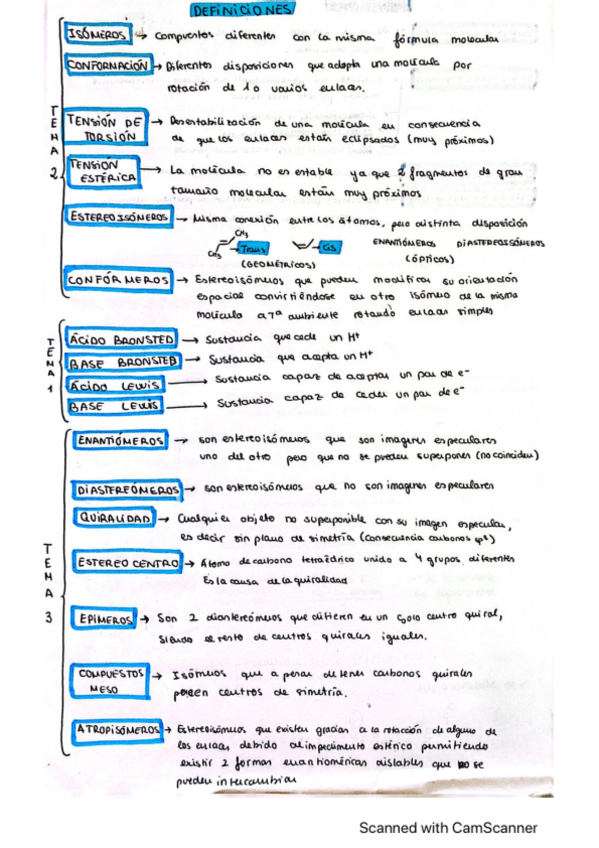 DEFINICIONES
ISÓMEROS → Compuestos diferentes con la misma fórmula molecular
CONFORMACIÓN → Diferentes disposiciones que adopta una molécula por
rotación de 1 o varios enlaces.
TENSIÓN DE TORSIÓN → Desestabilización de una molécula en consecuencia
de que los enlaces están eclipsados (muy próximos)
TEMA 2
TENSIÓN ESTÉRICA → La molécula no es estable ya que 2 fragmentos de gran
tamaño molecular están muy próximos
ESTEREOISÓMEROS → Misma conexión entre los átomos, pero distinta disposición
CH3 CH3 Trans Cis ENANTIÓMEROS DIASTEREOISÓMEROS
(GEOMÉTRICOS) (ÓPTICOS)
CONFÓRMEROS → Estereoisómeros que pueden modificar su orientación
espacial convirtiéndose en otro isómero de la misma
molécula a Tª ambiente rotando enlaces simples
TEMA 1
ÁCIDO BRONSTED → Sustancia que cede un H+
BASE BRONSTED → Sustancia que acepta un H+
ÁCIDO LEWIS → Sustancia capaz de aceptar un par de e-
BASE LEWIS → Sustancia capaz de ceder un par de e-
TEMA 3
ENANTIÓMEROS → son estereoisómeros que son imagenes especulares
uno del otro pero que no se pueden superponer (no coinciden)
DIASTEREÓMEROS → son estereoisómeros que no son imagenes especulares
QUIRALIDAD → Cualquier objeto no superponible con su imagen especular,
es decir sin plano de simetría (consecuencia carbonos sp3)
ESTEREOCENTRO → Átomo de carbono tetraédrico unido a 4 grupos diferentes
Es la causa de la quiralidad
EPÍMEROS → Son 2 diastereómeros que difieren en un solo centro quiral,
siendo el resto de centros quirales iguales.
COMPUESTOS MESO → Isómeros que a pesar de tener carbonos quirales
poseen centros de simetría.
ATROPISÓMEROS → Estereoisómeros que existen gracias a la rotación de alguno de
los enlaces debido al impedimento estérico permitiendo
existir 2 formas enantioméricas aislables que no se
pueden intercambiar
Scanned with CamScanner